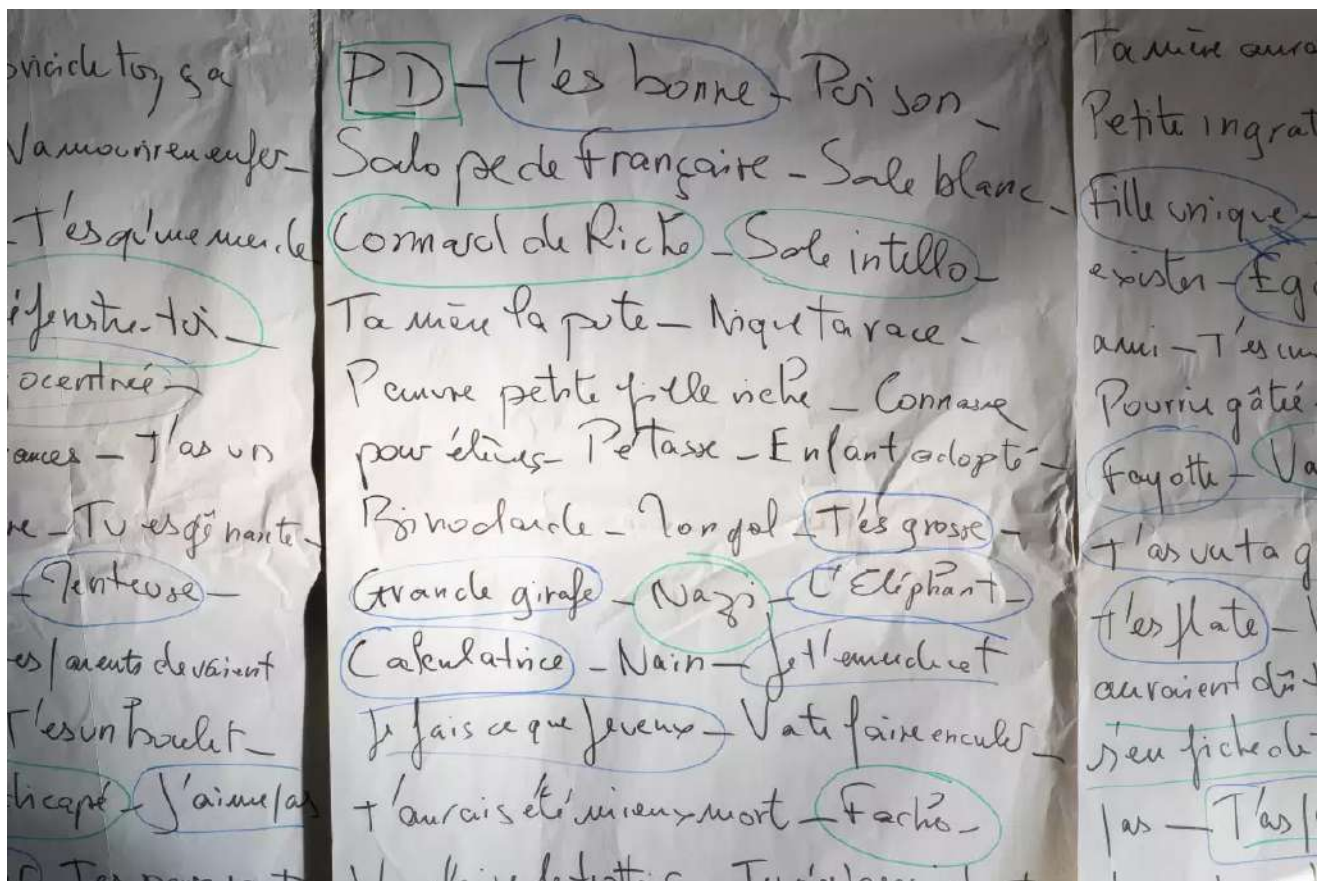 toi, ça
Va mourir en enfer_
- T'es qu'une merde
éfenstre-toi_
ocentrée -
ances - T'as un
re - Tu es gênante -
- Menteuse -
es parents devaient
T'es un boulet_
dicapé - J'aime pas
PD - T'es bonne - Poison_
Salope de Française - Sale blanc_
Connard de Riche - Sale intello -
Ta mère la pute - Nique ta race -
Pauvre petite fille riche - Connasse
pour élèves - Pétasse - Enfant adopté -
Binoclarde - Mongol - T'es grosse -
Grande girafe - Nazi - L'Eléphant -
Calculatrice - Nain - Je t'emmerde et
Je fais ce que je veux - Va te faire enculer_
t'aurais été mieux mort - Facho -
Ta mère aura
Petite ingrat
Fille unique -
exister - Ego
ami - T'es
Pourrie gâtée -
Fayotte - Va
T'as vu ta g
t'es plate -
auraient dû
s'en fiche de
pas - T'as